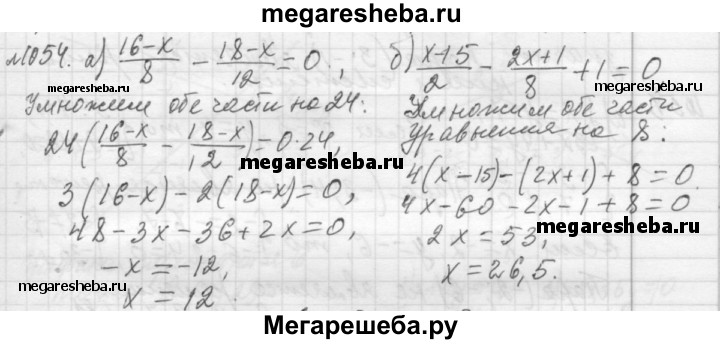 megaresheba.ru
№1054. а) (16-x)/8 - (18-x)/12 = 0.,
megaresheba.ru
Умножим обе части на 24:
24((16-x)/8 - (18-x)/12) = 0·24,
3(16-x)-2(18-x)=0,
48-3x-36+2x=0,
-x=-12,
megaresheba.ru
x=12
б) (x-15)/2 - (2x+1)/8 + 1 = 0
megaresheba.ru
Умножим обе части
уравнения на 8:
megaresheba.ru
4(x-15)-(2x+1)+8=0
4x-60-2x-1+8=0
megaresheba.ru
2x=53,
x=26,5.
megaresheba.ru
Мегарешеба.ру